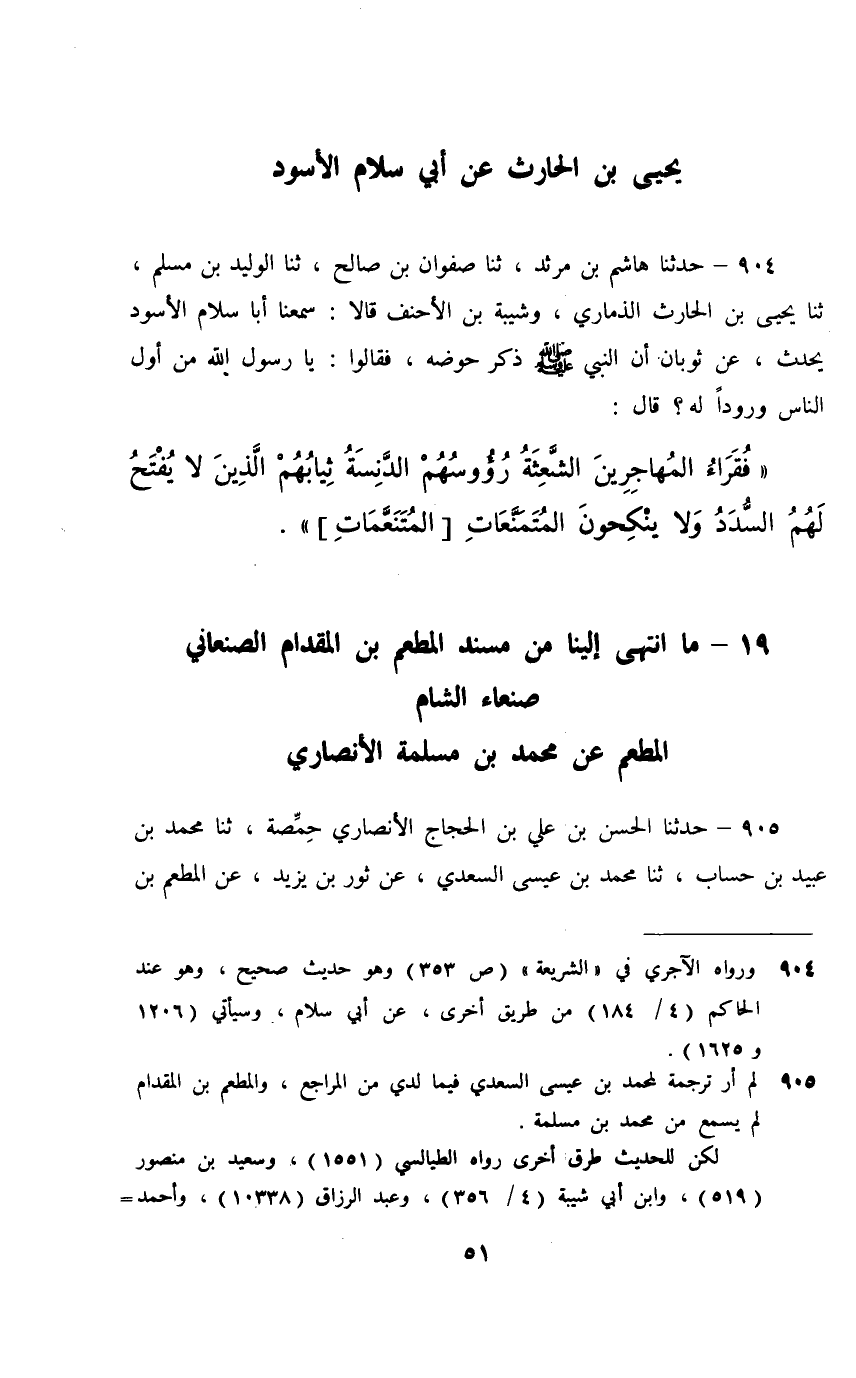 يحيـى بن الحارث عن أبي سلام الأسود
٩٠٤ – حدثنا هاشم بن مرثد ، ثنا صفوان بن صالح ، ثنا الوليد بن مسلم ،
ثنا يحيـى بن الحارث الذماري ، وشيبة بن الأحنف قالا : سمعنا أبا سلام الأسود
يحدث ، عن ثوبان أن النبي ﷺ ذكر حوضه ، فقالوا : يا رسول الله من أول
الناس وروداً له ؟ قال :
« فُقَرَاءُ المُهاجِرِينَ الشَّعِثَةُ رُؤُوسُهُمْ الدَّنِسَةُ ثِيابُهُمْ الَّذِينَ لا يُفْتَحُ
لَهُمُ السُّدَدُ وَلا ينْكِحونَ المُتَمَنَّعَاتِ [ المُتَنَعَّمَاتِ ] » .
١٩ – ما انتهى إلينا من مسند المطعم بن المقدام الصنعاني
صنعاء الشام
المطعم عن محمد بن مسلمة الأنصاري
٩٠٥ – حدثنا الحسن بن علي بن الحجاج الأنصاري حِمِّصة ، ثنا محمد بن
عبيد بن حساب ، ثنا محمد بن عيسى السعدي ، عن ثور بن يزيد ، عن المطعم بن
٩٠٤ ورواه الآجري في «الشريعة» (ص ٣٥٣) وهو حديث صحيح ، وهو عند
الحاكم (٤ / ١٨٤) من طريق أخرى ، عن أبي سلام ، وسيأتي (١٢٠٦
و ١٦٢٥) .
٩٠٥ لم أر ترجمة لمحمد بن عيسى السعدي فيما لدي من المراجع ، والمطعم بن المقدام
لم يسمع من محمد بن مسلمة .
لكن للحديث طرق أخرى رواه الطيالسي (١٥٥١) ، وسعيد بن منصور
(٥١٩) ، وابن أبي شيبة (٤ / ٣٥٦) ، وعبد الرزاق (١٠٣٣٨) ، وأحمد =
٥١